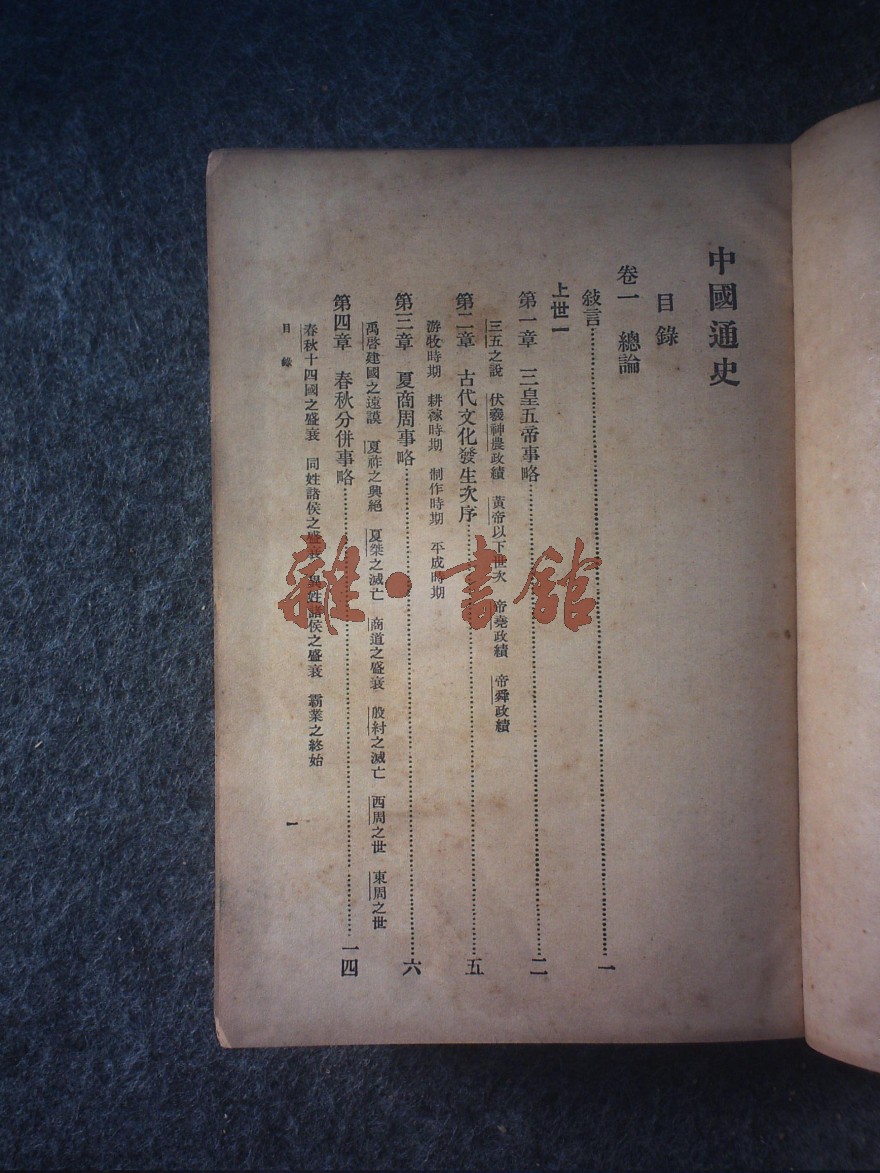 中國通史
目錄
卷一 總論
敍言……一
上世一
第一章 三皇五帝事略……二
三五之說 伏羲神農政績 黃帝以下世次 帝堯政績 帝舜政績
第二章 古代文化發生次序……五
游牧時期 耕稼時期 制作時期 平成時期
第三章 夏商周事略……六
禹啓建國之遠謨 夏祚之興絕 夏桀之滅亡 商道之盛衰 殷紂之滅亡 西周之世 東周之世
第四章 春秋分併事略……一四
春秋十四國之盛衰 同姓諸侯之盛衰 異姓諸侯之盛衰 霸業之終始
目錄
一
雜·書館